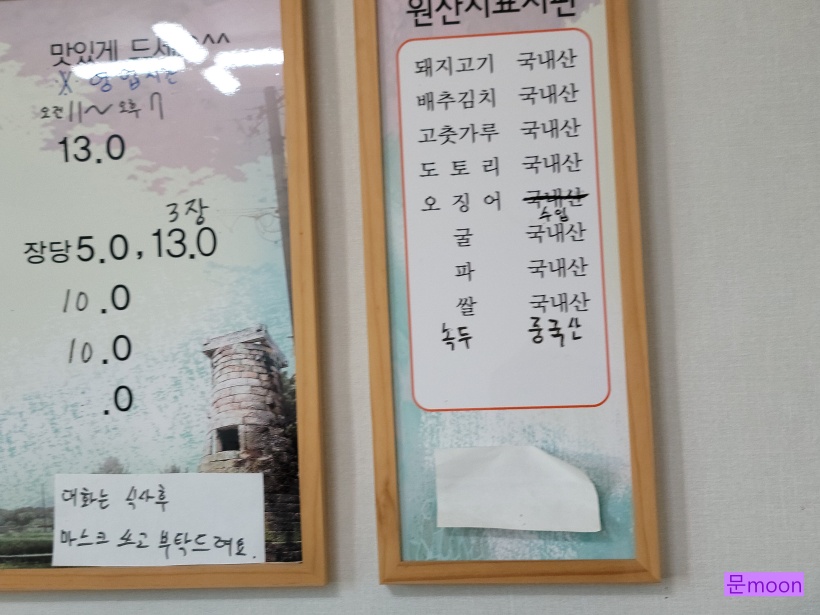 맛있게 드세요^^
※ 영업시간
오전 11~오후 7
13.0
3장
장당 5.0, 13.0
10.0
10.0
.0
대화는 식사후
마스크 쓰고 부탁드려요.
원산지표시판
돼지고기 국내산
배추김치 국내산
고춧가루 국내산
도토리 국내산
오징어 국내산
수입
굴 국내산
파 국내산
쌀 국내산
녹두 중국산
문moon